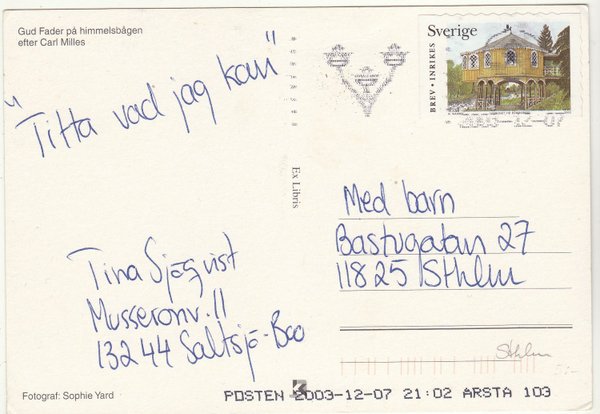 Gud Fader på himmelsbågen
efter Carl Milles
"Titta vad jag kan"
Tina Sjöqvist
Musseronv. 11
13244 Saltsjö-Boo
Fotograf: Sophie Yard
Ex Libris
Sverige
BREV • INRIKES
Med barn
Bastugatan 27
11825 Sthlm
Sthlm
POSTEN 2003-12-07 21:02 ARSTA 103